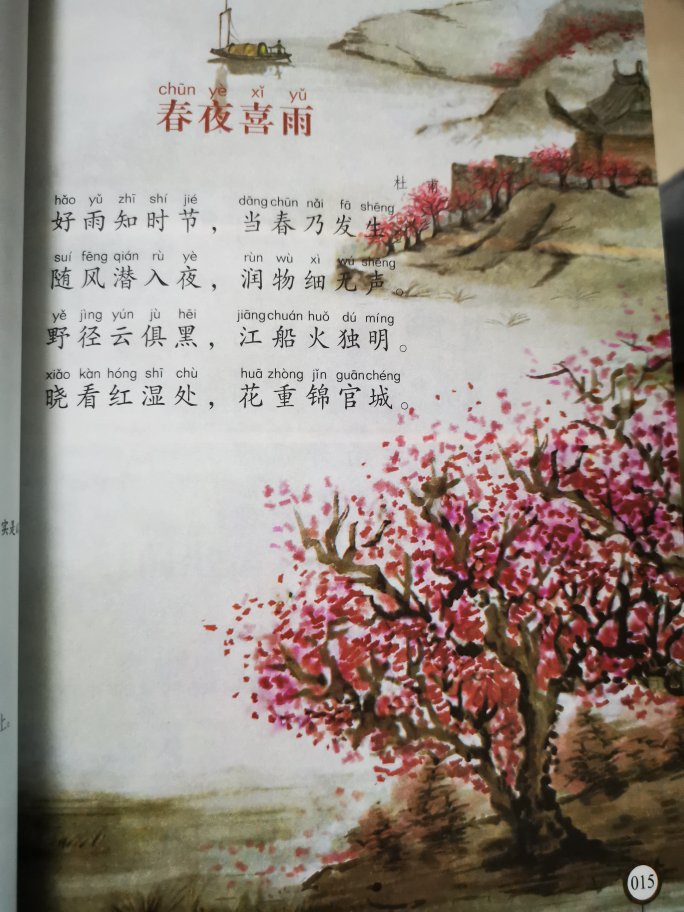 chūn yè xǐ yǔ
春夜喜雨
杜甫
hǎo yǔ zhī shí jié dāng chūn nǎi fā shēng
好雨知时节，当春乃发生。
suí fēng qián rù yè rùn wù xì wú shēng
随风潜入夜，润物细无声。
yě jìng yún jù hēi jiāng chuán huǒ dú míng
野径云俱黑，江船火独明。
xiǎo kàn hóng shī chù huā zhòng jǐn guān chéng
晓看红湿处，花重锦官城。
实是
上。
015